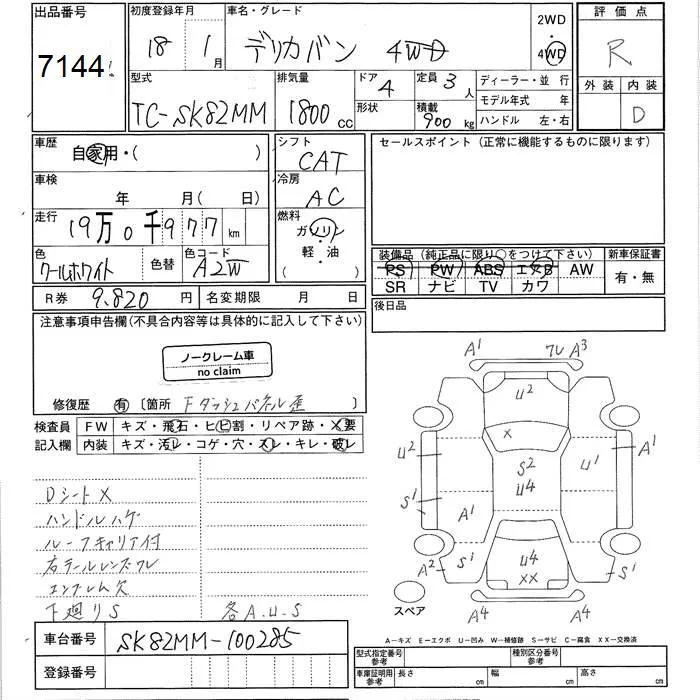 出品番号
7144
初度登録年月
18年 1月
車名・グレード
デリカバン 4WD
2WD
・
4WD
評価点
R
外装 内装
D
型式
TC-SK82MM
排気量
1800cc
ドア
4
形状
定員 3人
積載
900kg
ディーラー・並行
モデル年式 年
ハンドル 左・右
車歴
自家用・( )
車検
年 月(日)
走行
19万0千977km
色
クールホワイト
色替
色コード
A2W
シフト
CAT
冷房
AC
燃料
ガソリン
・
軽・油
( )
セールスポイント(正常に機能するものに限ります)
装備品(純正品に限り○をつけて下さい)
PS PW ABS エアB AW
SR ナビ TV カワ
新車保証書
有・無
R券 9.820円
名変期限 月 日
後日品
注意事項申告欄(不具合内容等は具体的に記入して下さい)
ノークレーム車
no claim
修復歴 有 〔箇所 Fダッシュパネル歪 〕
検査員
記入欄
FW キズ・飛石・ヒビ割・リペア跡・X要
内装 キズ・汚レ・コゲ・穴・スレ・キレ・破レ
DシートX
ハンドルハゲ
ルーフキャリア付
右テールレンズワレ
エンブレム欠
下廻りS
各A.U.S
車台番号 SK82MM-100285
登録番号
A1
ワレ A3
U2
X
U2
A1
S2
U4
U1
S1
A1
A2
S1
U4
XX
S1
A4
A4
スペア
A-キズ E-エクボ U-凹み W-補修跡 S-サビ C-腐食 XX-交換済
型式指定番号
参考
種別区分番号
参考
車庫証明用
参考
長さ cm
幅 cm
高さ cm